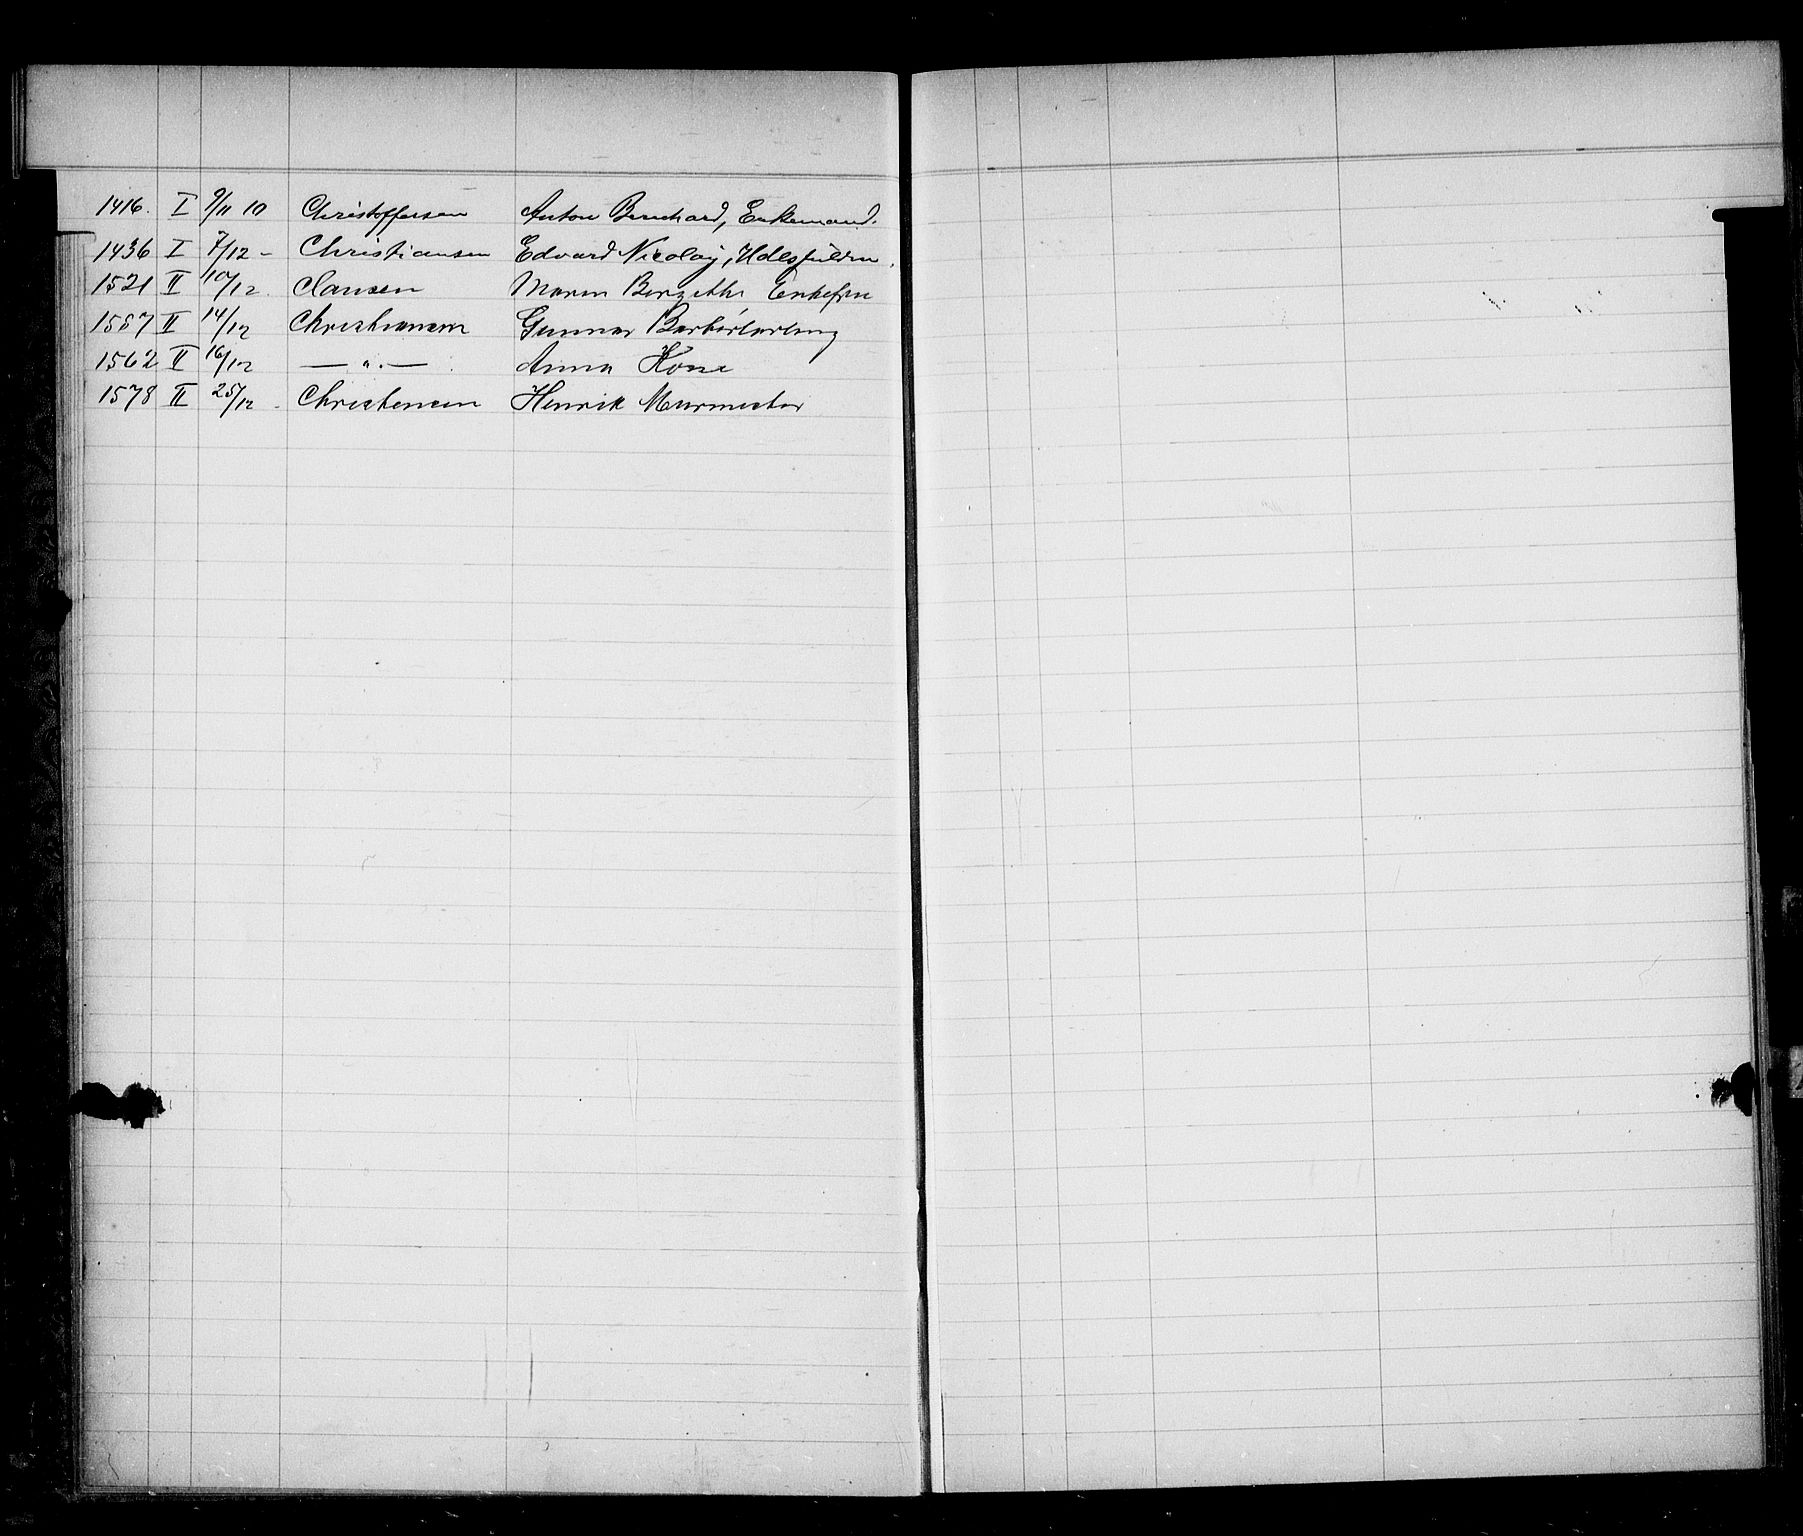 1416. I 9/11 10 Christoffersen Anton Bernhard, Enkemand.
1436 I 7/12 - Christiansen Edvard Nicolay,
1521 II 10/12. Clausen Maren Bergethe Enkefru
1557 II 14/12 Christiansen Gunnar
1562 II 16/12 — " — Anna Kone
1578 II 25/12 - Christensen Henrik Murmester